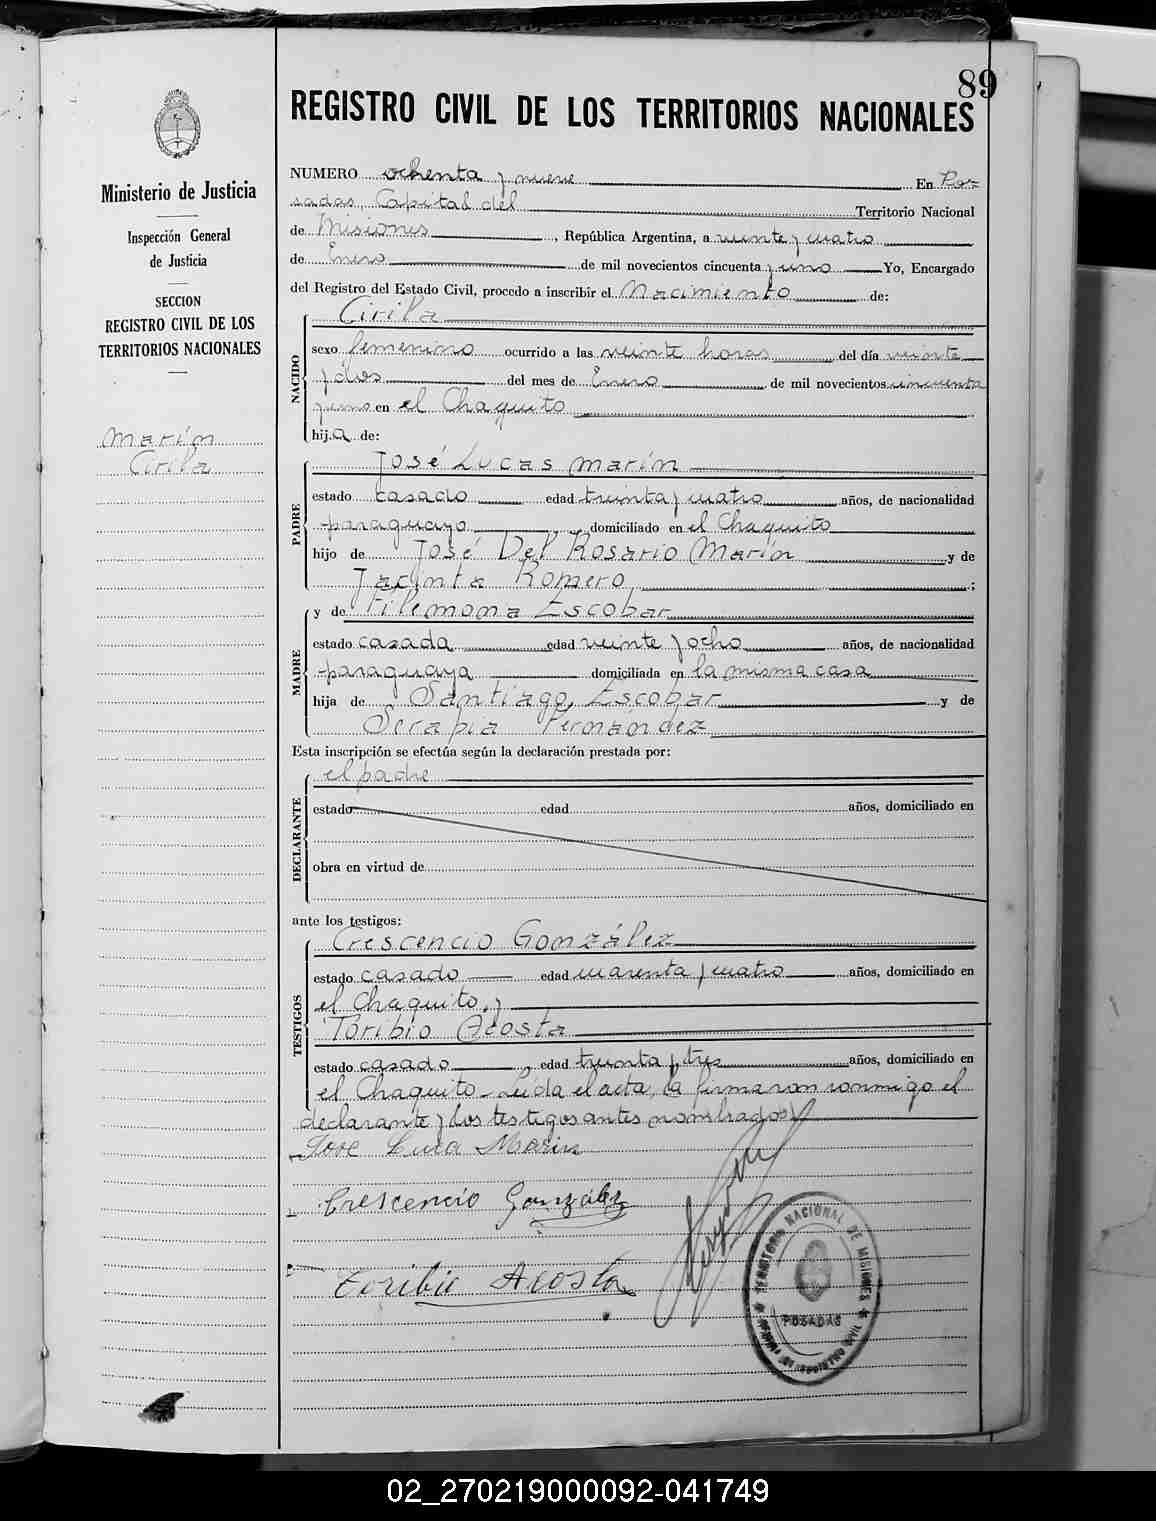 89
REGISTRO CIVIL DE LOS TERRITORIOS NACIONALES
Ministerio de Justicia
Inspección General
de Justicia
SECCION
REGISTRO CIVIL DE LOS
TERRITORIOS NACIONALES
Marín
Cirila
NUMERO ochenta y nueve En Po-
sadas, Capital del Territorio Nacional
de Misiones, República Argentina, a veinte y cuatro
de Enero de mil novecientos cincuenta y uno Yo, Encargado
del Registro del Estado Civil, procedo a inscribir el Nacimiento de:
NACIDO
Cirila
sexo femenino ocurrido a las veinte horas del día veinte
y dos del mes de Enero de mil novecientos cincuenta
y uno en el Chaquito
hija de:
PADRE
José Lucas Marín
estado casado edad treinta y cuatro años, de nacionalidad
paraguayo, domiciliado en el Chaquito
hijo de José Del Rosario Marín y de
Jacinta Romero;
MADRE
y de Filemona Escobar
estado casada edad veinte y ocho años, de nacionalidad
paraguaya domiciliada en la misma casa
hija de Santiago Escobar y de
Serapia Fernandez
Esta inscripción se efectúa según la declaración prestada por:
DECLARANTE
el padre
estado edad años, domiciliado en
obra en virtud de
ante los testigos:
TESTIGOS
Crescencio González
estado casado edad cuarenta y cuatro años, domiciliado en
el Chaquito, y
Toribio Acosta
estado casado edad treinta y tres años, domiciliado en
el Chaquito - Leida el acta, la firmaron conmigo el
declarante y los testigos antes nombrados
Jose Luca Marin
Crescencio González
Toribio Acosta
TERRITORIO NACIONAL DE MISIONES
POSADAS
REGISTRO CIVIL
02_270219000092-041749